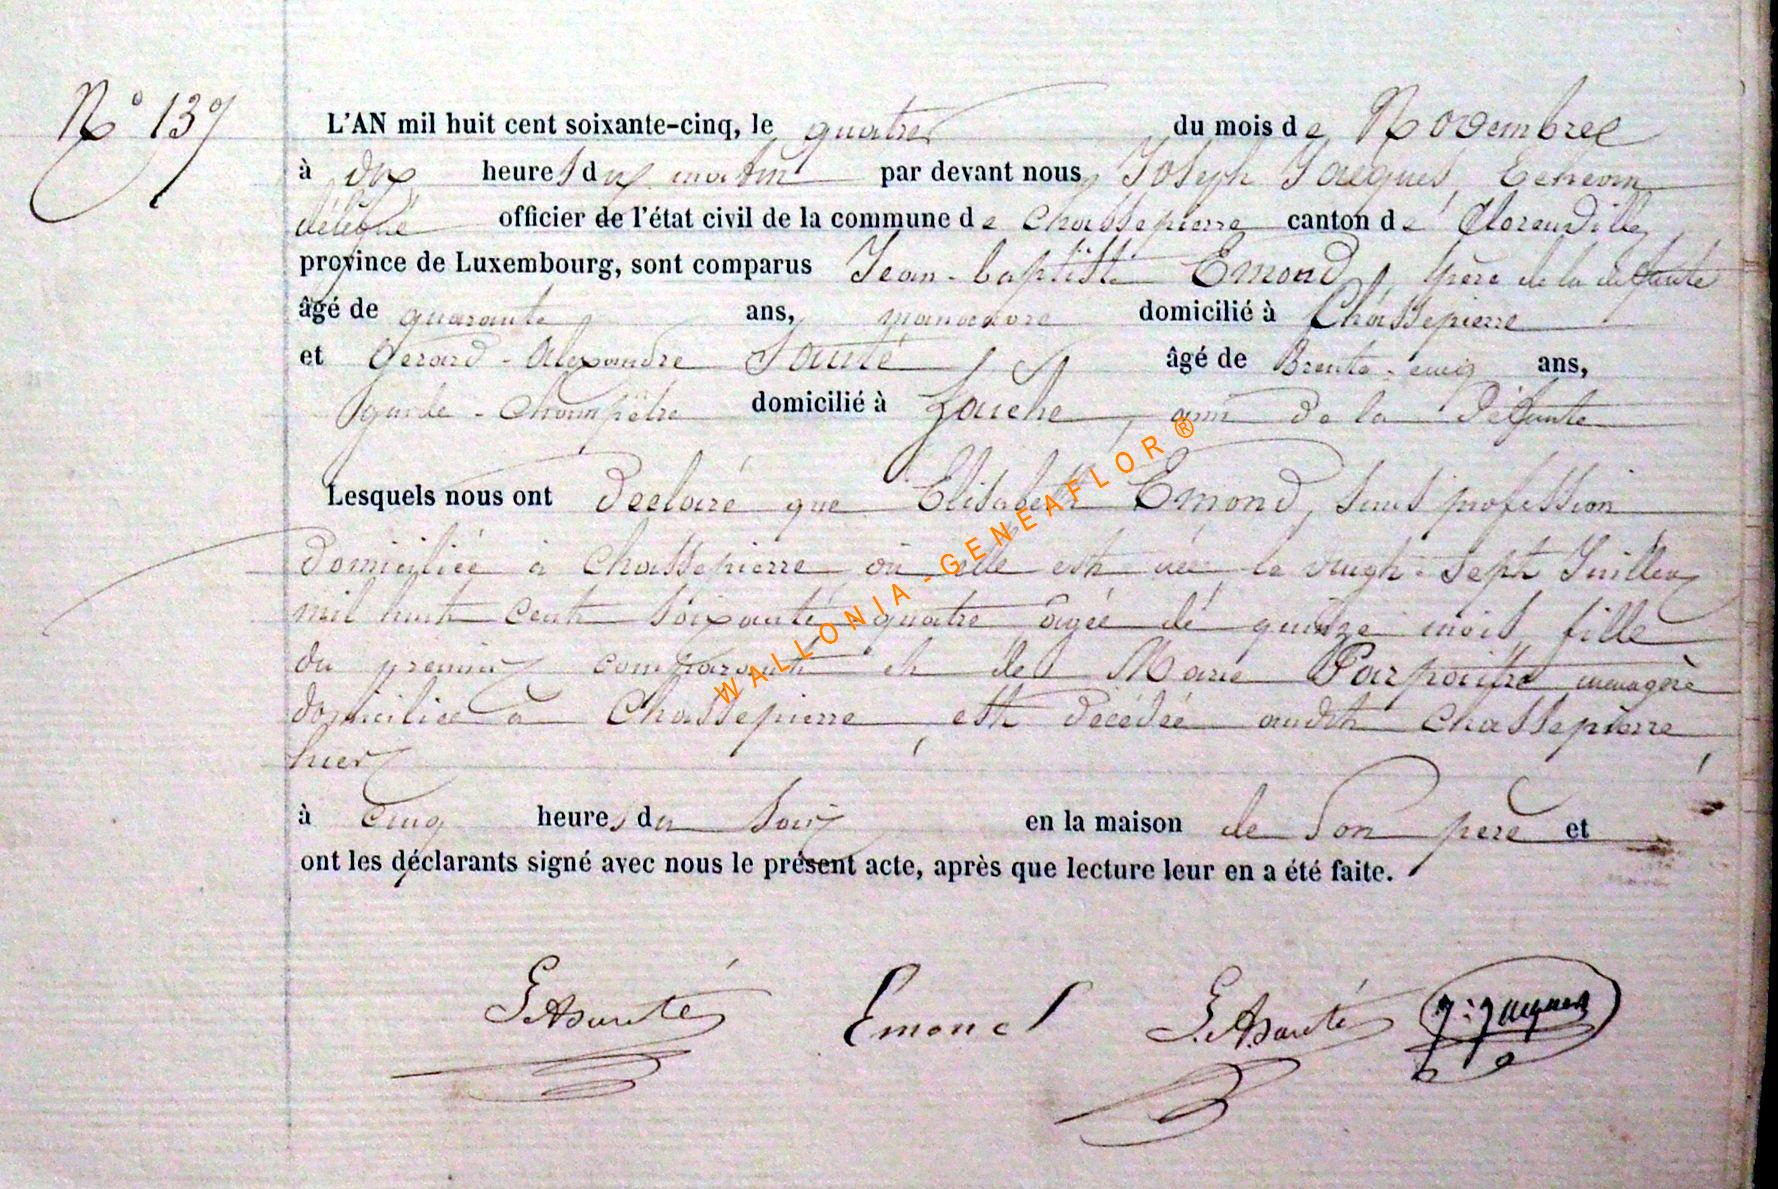 N° 137
L'AN mil huit cent soixante-cinq, le quatre du mois de Novembre
à dix heures du matin par devant nous, Joseph Jacques, Echevin
délégué officier de l'état civil de la commune de Chassepierre canton de Florenville
province de Luxembourg, sont comparus Jean-baptiste Emond, père de la défunte
âgé de quarante ans, manœuvre domicilié à Chassepierre
et Gerard-Alexandre Sauté âgé de Trente-cinq ans,
garde-Champêtre domicilié à Laiche, ami de la Défunte
Lesquels nous ont Declaré que Elisabeth Emond, sans profession
domiciliée à Chassepierre où elle est née, le vingt-sept Juillet
mil huit cent soixante quatre agée de quinze mois fille
du premier comparant et de Marie Parpaitre menagère
domiciliée à Chassepierre, est décédée audit Chassepierre,
hier
à cinq heures du soir en la maison de son père et
ont les déclarants signé avec nous le présent acte, après que lecture leur en a été faite.
G. A Sauté Emond G. A. Sauté J. Jacques
WALLONIA-GENEAFLOR®